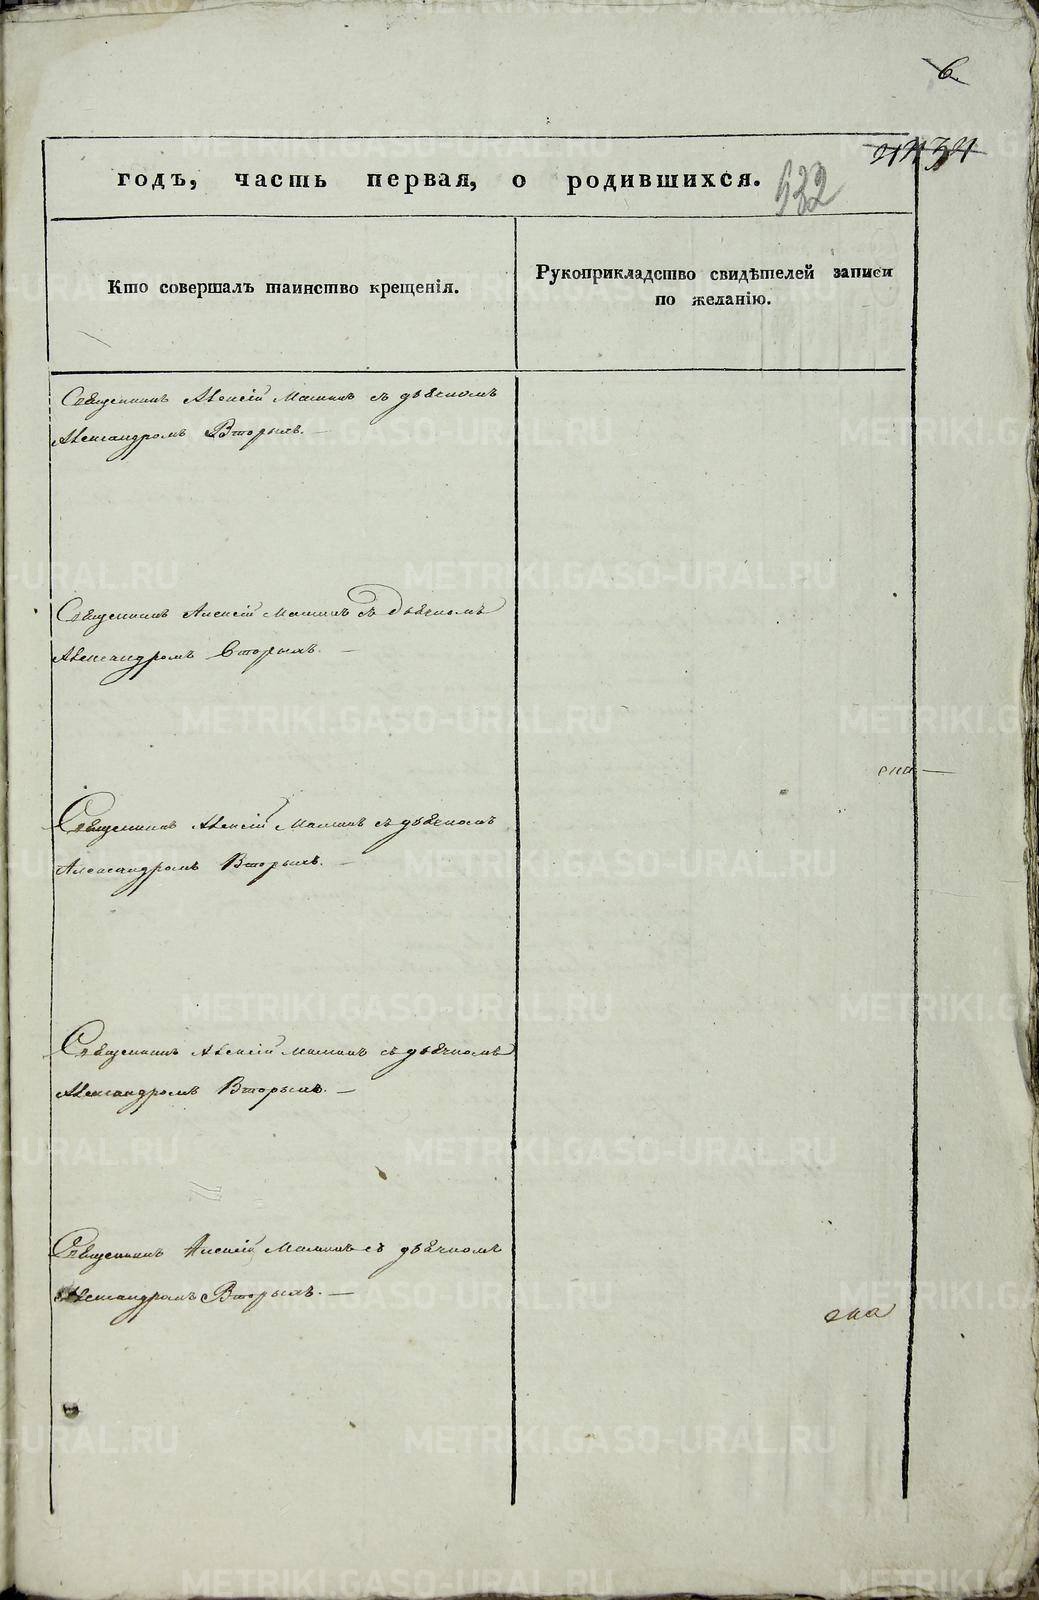 6.
годъ, часть первая, о родившихся.
532
Кто совершалъ таинство крещенія.
Рукоприкладство свидѣтелей записи
по желанію.
Священникъ Алексій Маминъ съ дьячкомъ
Александромъ Вторымъ. —
Священникъ Алексій Маминъ съ Дьячкомъ
Александромъ Вторымъ. —
Священникъ Алексій Маминъ съ дьячкомъ
Александромъ Вторымъ. —
Священникъ Алексій Маминъ съ дьячкомъ
Александромъ Вторымъ. —
Священникъ Алексій Маминъ съ дьячкомъ
Александромъ Вторымъ. —
METRIKI.GASO-URAL.RU